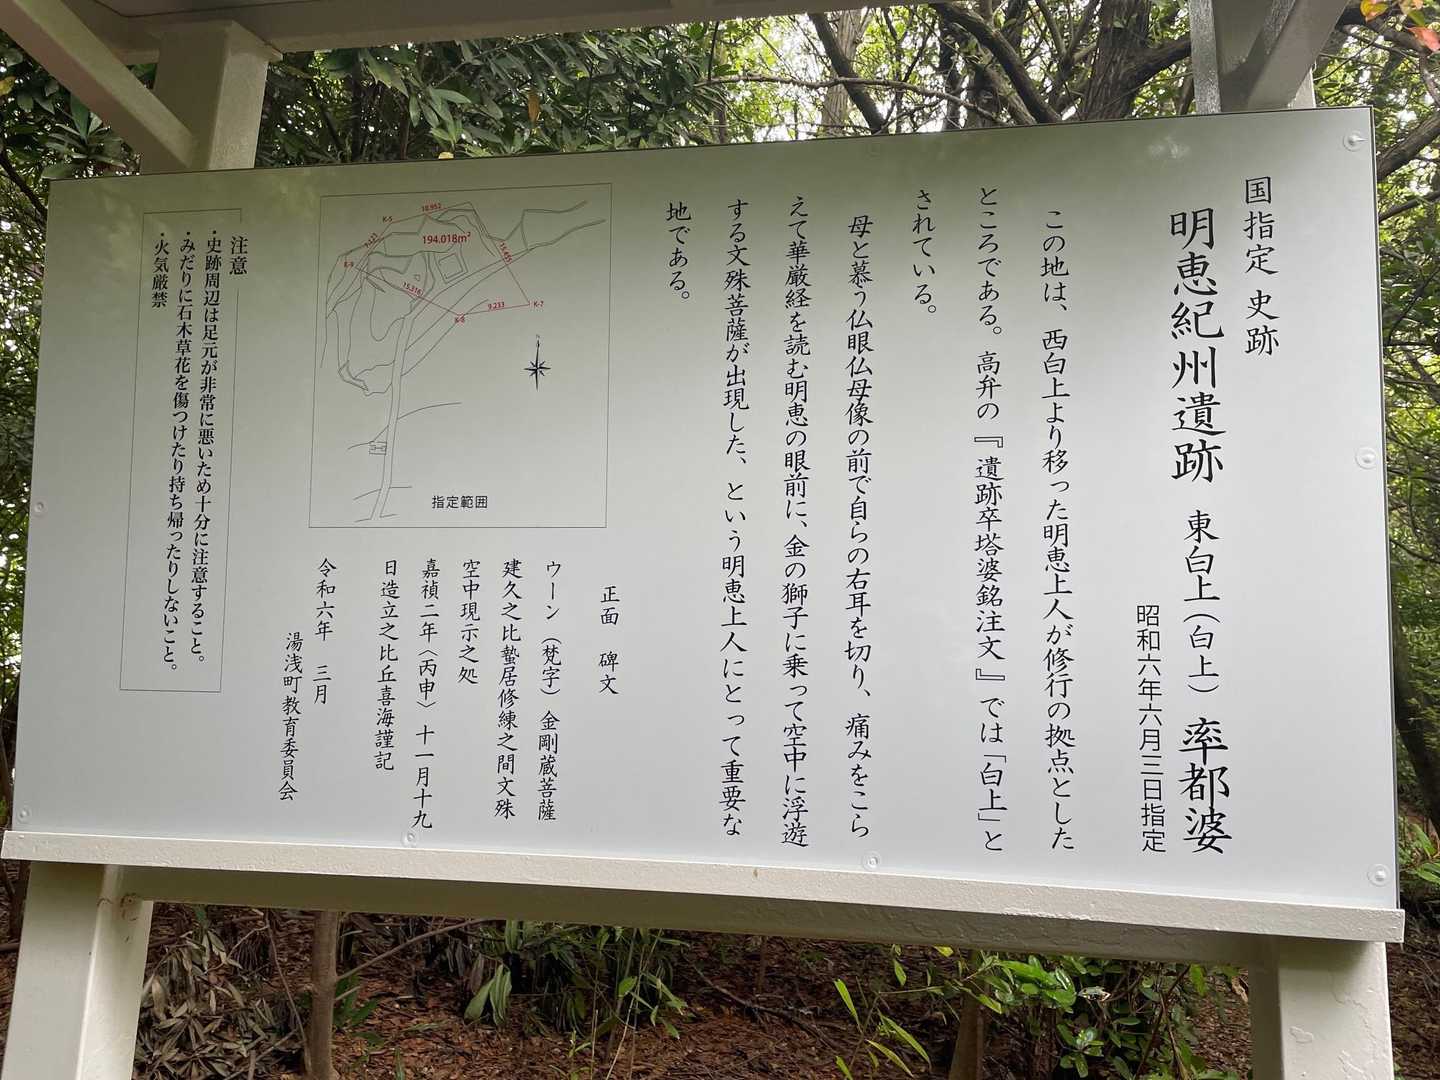 国指定 史跡
明恵紀州遺跡 東白上(白上) 率都婆
昭和六年六月三日指定
この地は、西白上より移った明恵上人が修行の拠点とした
ところである。高弁の『遺跡卒塔婆銘注文』では「白上」と
されている。
母と慕う仏眼仏母像の前で自らの右耳を切り、痛みをこら
えて華厳経を読む明恵の眼前に、金の獅子に乗って空中に浮遊
する文殊菩薩が出現した、という明恵上人にとって重要な
地である。
正面 碑文
ウーン(梵字) 金剛蔵菩薩
建久之比蟄居修練之間文殊
空中現示之処
嘉禎二年〈丙申〉十一月十九
日造立之比丘喜海謹記
令和六年 三月
湯浅町教育委員会
K-5
18.952
194.018m²
K-9
15.316
K-8
9.233
K-7
N
指定範囲
注意
・史跡周辺は足元が非常に悪いため十分に注意すること。
・みだりに石木草花を傷つけたり持ち帰ったりしないこと。
・火気厳禁